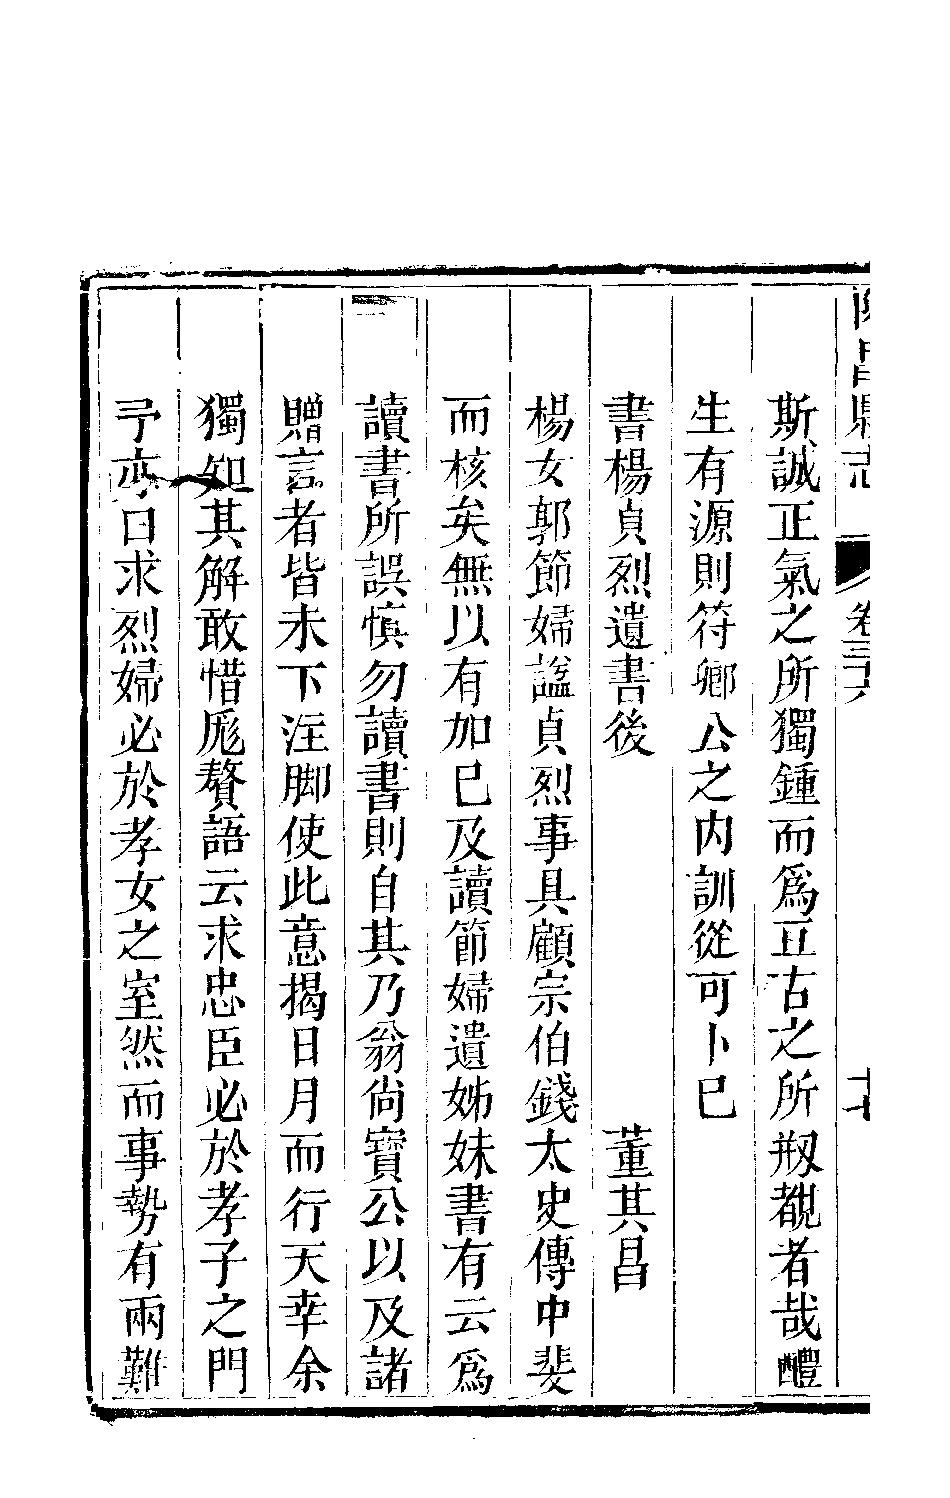 縣志 卷三十六
斯誠正氣之所獨鍾而爲亙古之所剏覩者哉醴
生有源則符卿公之内訓從可卜巳
書楊貞烈遺書後 董其昌
楊女郭節婦謚貞烈事具顧宗伯錢太史傳中斐
而核矣無以有加巳及讀節婦遺姊妹書有云爲
讀書所誤慎勿讀書則自其乃翁尙寶公以及諸
贈言者皆未下注脚使此意揭日月而行天幸余
獨知其解敢惜厖贅語云求忠臣必於孝子之門
予亦曰求烈婦必於孝女之室然而事勢有兩難